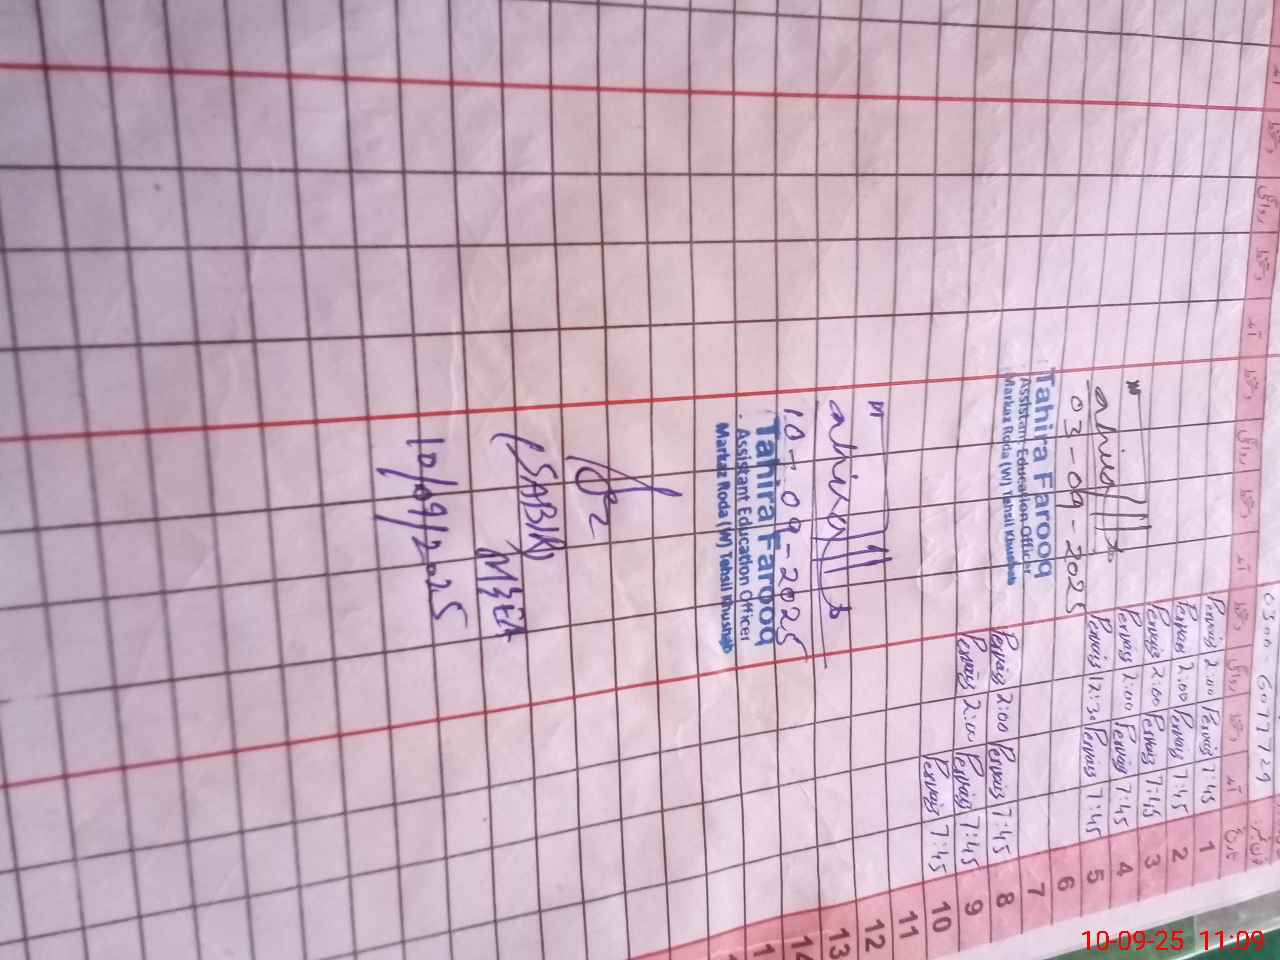 0300-6077729
تاریخ آمد دستخط روانگی دستخط آمد دستخط روانگی دستخط آمد دستخط روانگی دستخط
1 7:45 Pervaiz 2:00 Pervaiz
2 7:45 Pervaiz 2:00 Pervaiz
3 7:45 Pervaiz 2:00 Pervaiz
4 7:45 Pervaiz 2:00 Pervaiz
5 7:45 Pervaiz 12:30 Pervaiz
6
7
8 7:45 Pervaiz 2:00 Pervaiz
9 7:45 Pervaiz 2:00 Pervaiz
10 7:45 Pervaiz
11
12
13
14
03-09-2025
Tahira Farooq
Assistant Education Officer
Markaz Roda (W) Tehsil Khushab
10-09-2025
Tahira Farooq
Assistant Education Officer
Markaz Roda (W) Tehsil Khushab
(SABIR)
MEA
10/09/2025
10-09-25 11:09